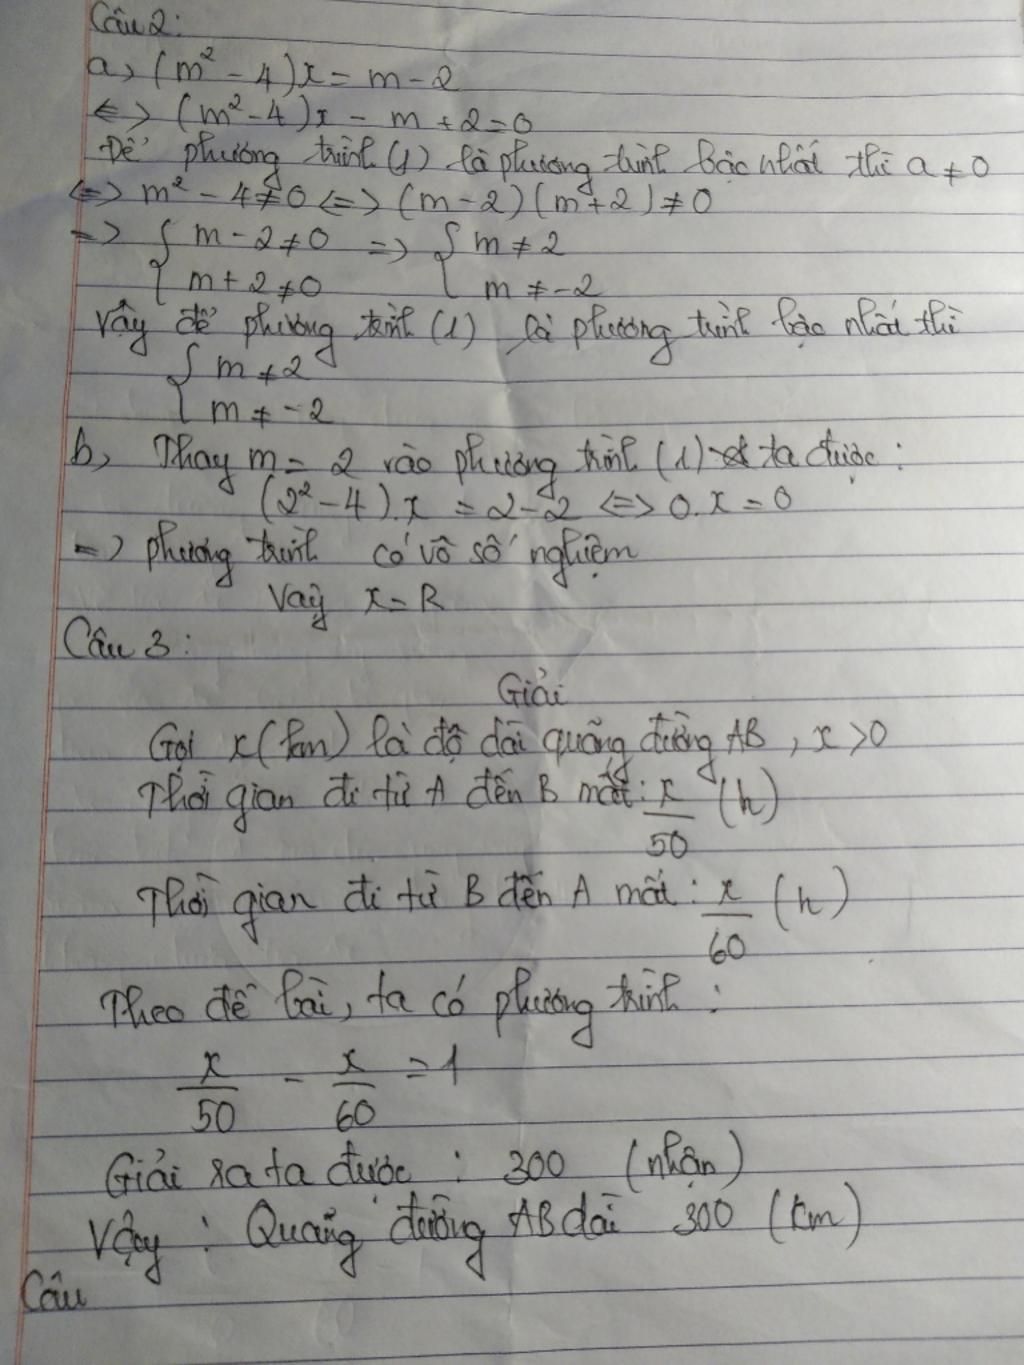 Câu 2:
a, (m² - 4)x = m - 2
<=> (m² - 4)x - m + 2 = 0
Để phương trình (1) là phương trình bậc nhất thì a ≠ 0
<=> m² - 4 ≠ 0 <=> (m - 2)(m + 2) ≠ 0
=> { m - 2 ≠ 0 => { m ≠ 2
m + 2 ≠ 0 m ≠ -2
Vậy để phương trình (1) là phương trình bậc nhất thì
{ m ≠ 2
m ≠ -2
b, Thay m = 2 vào phương trình (1) ta được:
(2² - 4).x = 2 - 2 <=> 0.x = 0
=> phương trình có vô số nghiệm
Vaỳ x = R
Câu 3:
Giải
Gọi x (km) là độ dài quãng đường AB, x > 0
Thời gian đi từ A đến B mất: x/50 (h)
Thời gian đi từ B đến A mất: x/60 (h)
Theo đề bài, ta có phương trình:
x/50 - x/60 = 1
Giải ra ta được: 300 (nhận)
Vậy: Quãng đường AB dài 300 (km)
Câu